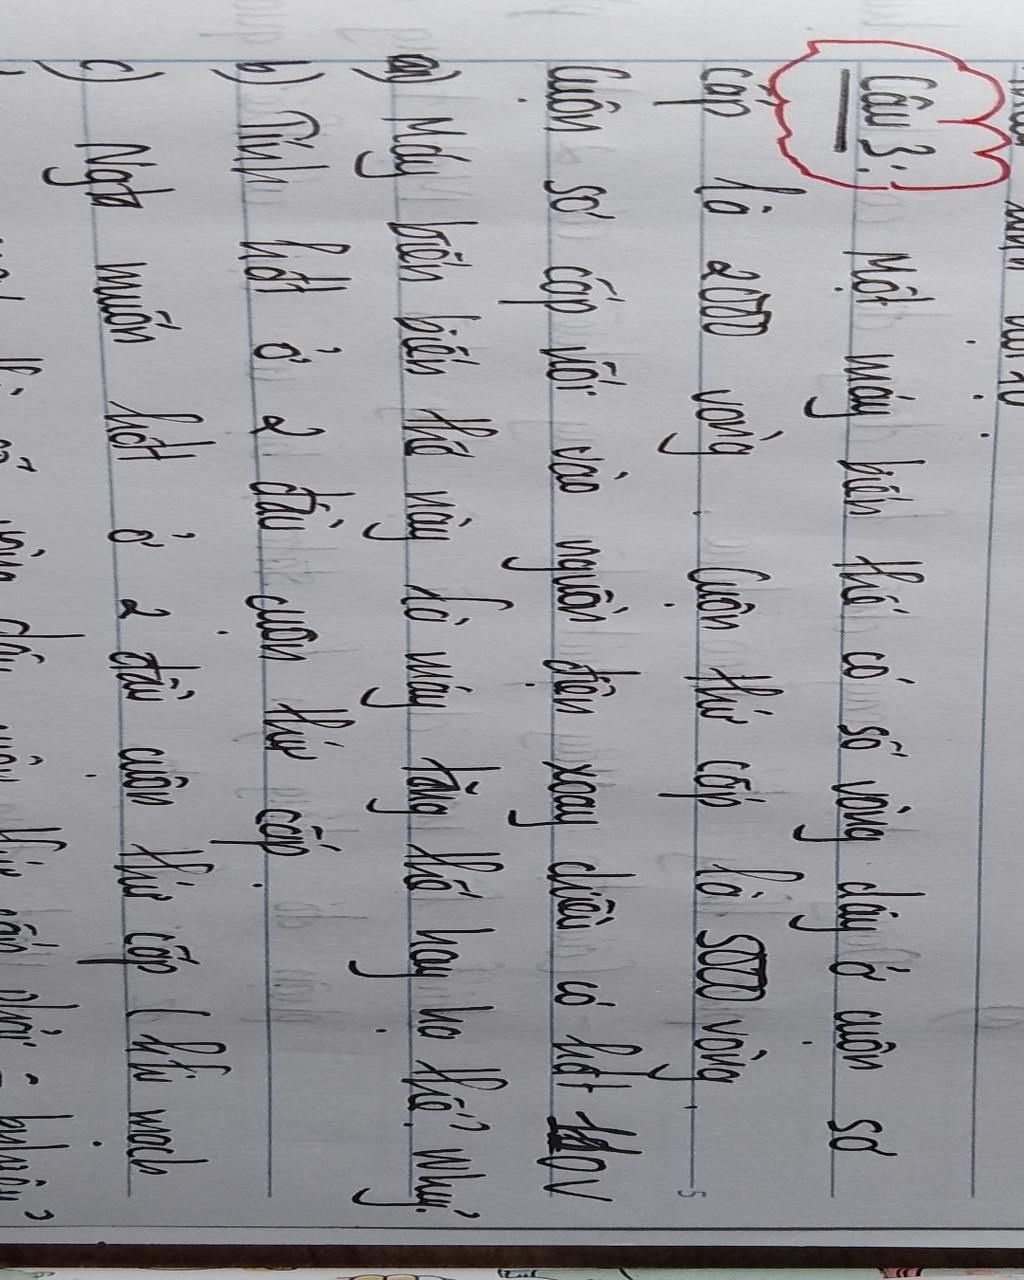 Câu 3: Một máy biến thế có số vòng dây ở cuộn sơ
cấp là 2000 vòng. Cuộn thứ cấp là 5000 vòng.
Cuộn sơ cấp nối vào nguồn điện xoay chiều có hđt
a) Máy biến biến thế này là máy tăng thế hay hạ thế? Why?
b) Tính hđt ở 2 đầu cuộn thứ cấp.
c) Ngta muốn hđt ở 2 đầu cuộn thứ cấp (khi mạch
thì vòng dây cuộn thứ cấp phải = bnhiêu?